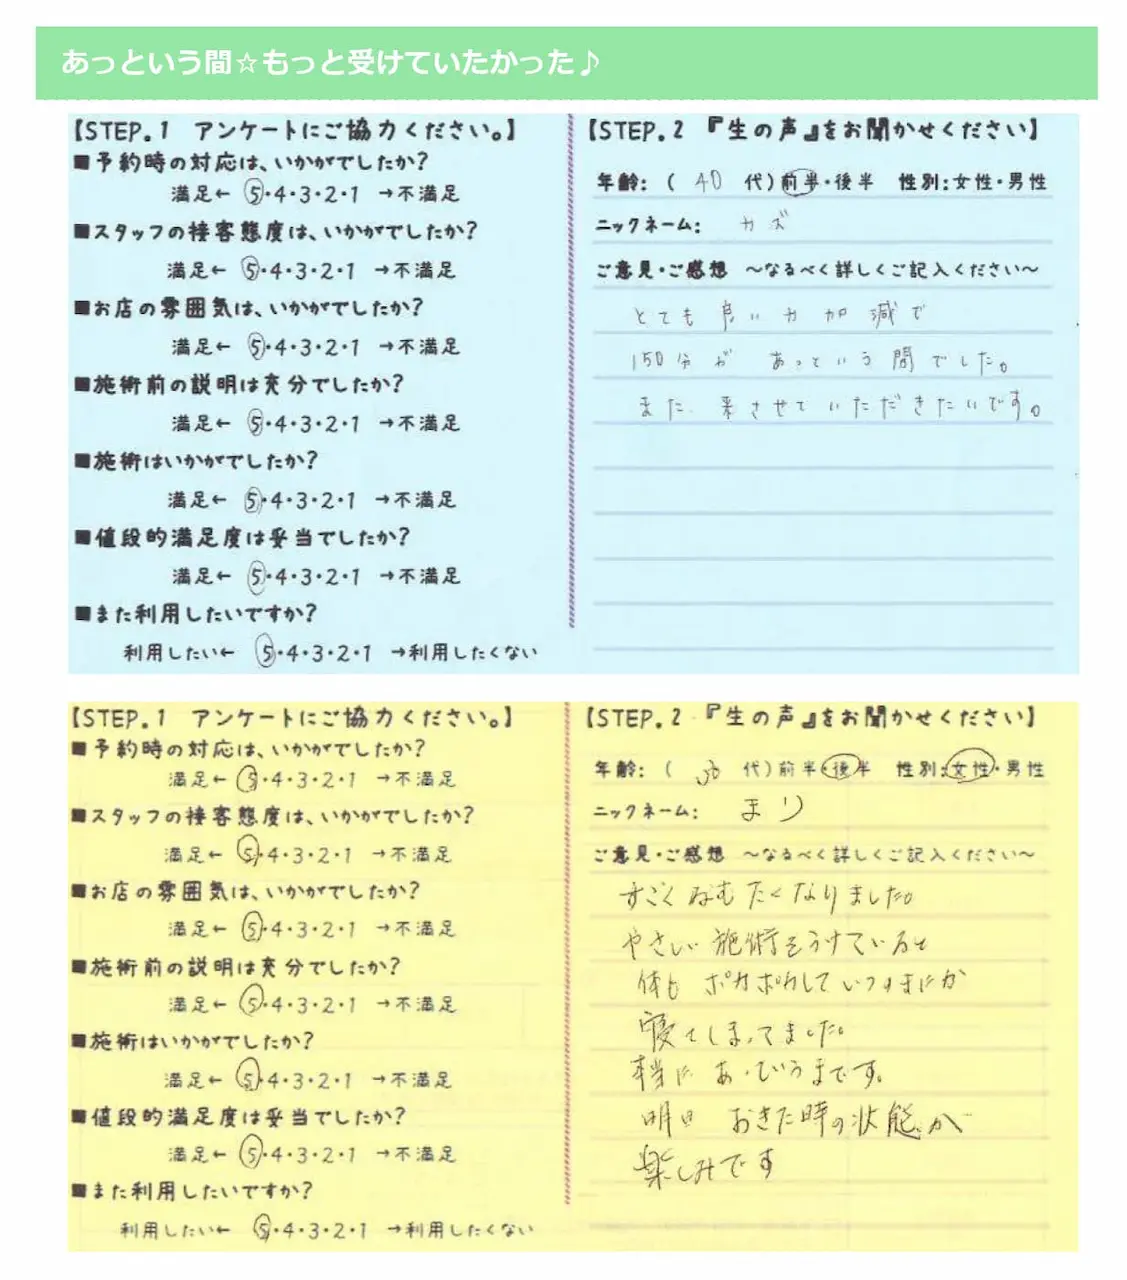 あっという間☆もっと受けていたかった♪
【STEP.1 アンケートにご協力ください。】
■予約時の対応は、いかがでしたか?
満足← 5・4・3・2・1 →不満足
■スタッフの接客態度は、いかがでしたか?
満足← 5・4・3・2・1 →不満足
■お店の雰囲気は、いかがでしたか?
満足← 5・4・3・2・1 →不満足
■施術前の説明は充分でしたか?
満足← 5・4・3・2・1 →不満足
■施術はいかがでしたか?
満足← 5・4・3・2・1 →不満足
■値段的満足度は妥当でしたか?
満足← 5・4・3・2・1 →不満足
■また利用したいですか?
利用したい← 5・4・3・2・1 →利用したくない
【STEP.2 『生の声』をお聞かせください】
年齢: ( 40 代)前半・後半 性別:女性・男性
ニックネーム: カズ
ご意見・ご感想 ~なるべく詳しくご記入ください~
とても良い力加減で
150分があっという間でした。
また来させていただきたいです。
【STEP.1 アンケートにご協力ください。】
■予約時の対応は、いかがでしたか?
満足← 5・4・3・2・1 →不満足
■スタッフの接客態度は、いかがでしたか?
満足← 5・4・3・2・1 →不満足
■お店の雰囲気は、いかがでしたか?
満足← 5・4・3・2・1 →不満足
■施術前の説明は充分でしたか?
満足← 5・4・3・2・1 →不満足
■施術はいかがでしたか?
満足← 5・4・3・2・1 →不満足
■値段的満足度は妥当でしたか?
満足← 5・4・3・2・1 →不満足
■また利用したいですか?
利用したい← 5・4・3・2・1 →利用したくない
【STEP.2 『生の声』をお聞かせください】
年齢: ( 代)前半・後半 性別:女性・男性
ニックネーム: まり
ご意見・ご感想 ~なるべく詳しくご記入ください~
すごくねむたくなりました。
やさしい施術をうけていると
体もポカポカしていつのまにか
寝てしまってました。
本当にあっというまです。
明日 おきた時の状態が
楽しみです